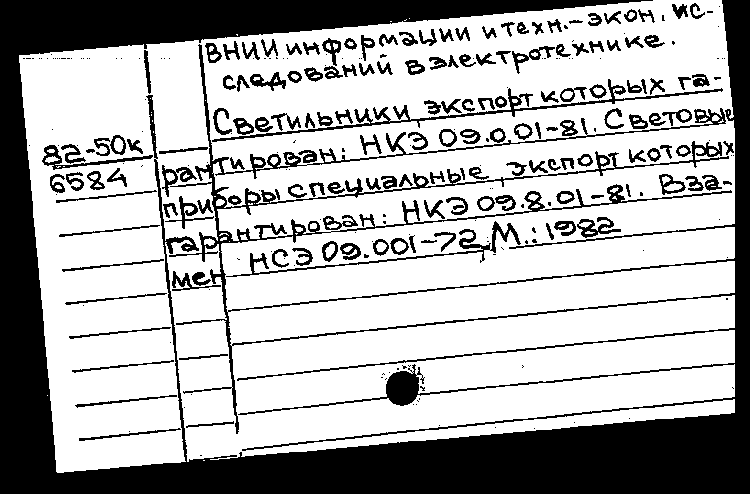 ВНИИ информации и техн.-экон. ис-
следований в электротехнике.
Светильники, экспорт которых га-
82-50к
6584
рантирован: НКЭ 09.0.01-81. Световые
приборы специальные, экспорт которых
гарантирован: НКЭ 09.8.01-81. Вза-
мен НСЭ 09.001-72, М.: 1982